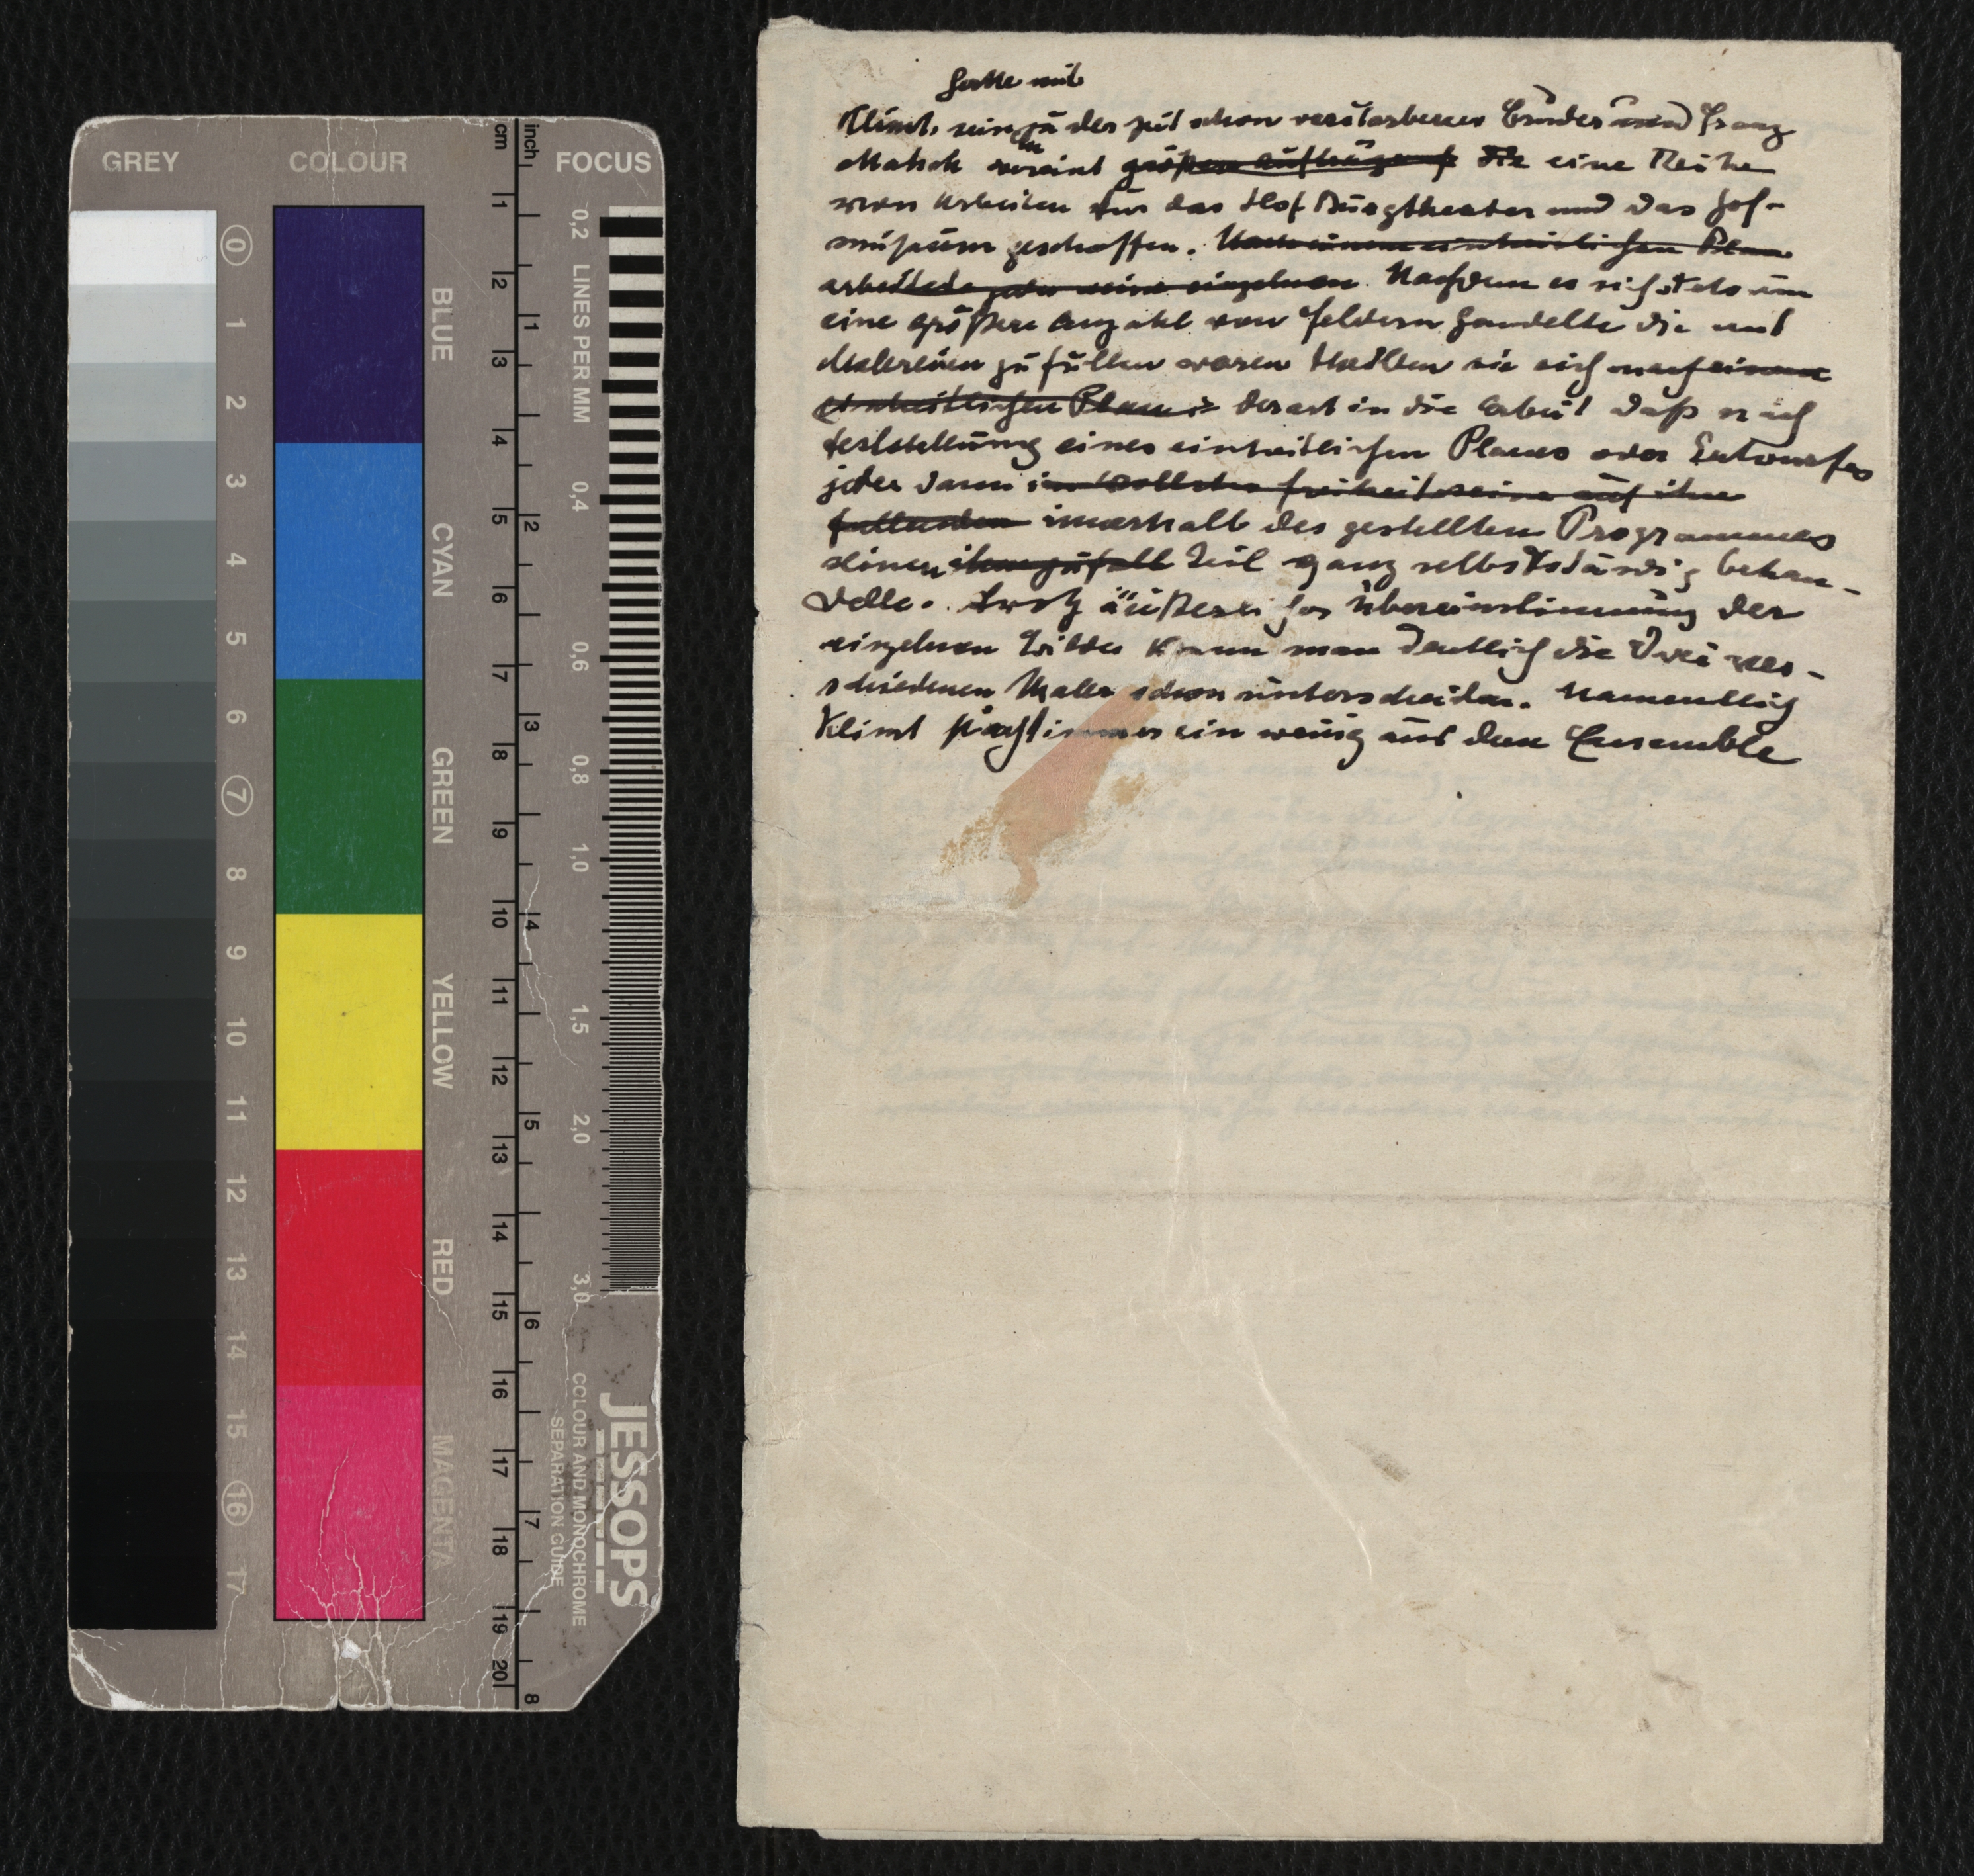 GREY COLOUR FOCUS
cm inch
0 1 2 3 4 5 6 7 8 9 10 11 12 13 14 15 16 17
BLUE
CYAN
GREEN
YELLOW
RED
MAGENTA
1 2 3 4 5 6 7 8 9 10 11 12 13 14 15 16 17 18 19 20
1 2 3 4 5 6 7 8
LINES PER MM
0,2 0,4 0,6 0,8 1,0 1,5 2,0 3,0
JESSOPS
COLOUR AND MONOCHROME
SEPARATION GUIDE
hatte mit
Klimt, sein der schon verstorbener Bruder und Franz
Matsch vereint größere Aufträge f die eine Reihe
von Arbeiten für das Hof Burgtheater und das Hof-
museum geschaffen. Nach einem einheitlichen Plan
arbeitete jeder seine einzelnen. Nachdem es sich stets um
eine größere Anzahl von Feldern handelte die mit
Malereien zu füllen waren theilten sie sich nach einem
einheitlichen Plan derart in die Arbeit daß nach
Feststellung eines einheitlichen Planes oder Entwurfes
jeder dann in vollster Freiheit seine auf ihn
fallenden innerhalb des gestellten Programmes
seinen ihm zufall Teil ganz selbstständig behan-
delte. Trotz äußerlicher Übereinstimmung der
einzelnen Bilder kann man deutlich die drei ver-
schiedenen Maler schon unterscheiden. Namentlich
Klimt immer ein wenig aus dem Ensemble